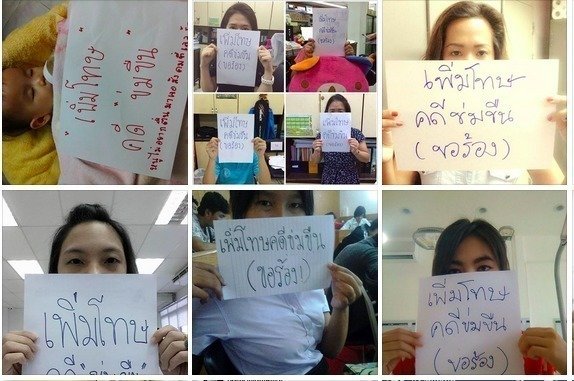 "เพิ่มโทษ"
คดี "ข่มขืน
เพิ่มโทษ
คดีข่มขืน
(ขอร้อง)
เพิ่มโทษ
คดีข่มขืน
(ขอร้อง)
เพิ่มโทษ
คดีข่มขืน
(ขอร้อง)
เพิ่มโทษ
คดีข่มขืน
(ขอร้อง)
เพิ่มโทษ
คดีข่มขืน
(ขอร้อง)
เพิ่มโทษ
คดีข่มขืน
เพิ่มโทษคดีข่มขืน
(ขอร้อง!)
เพิ่มโทษ
คดีข่มขืน
(ขอร้อง)